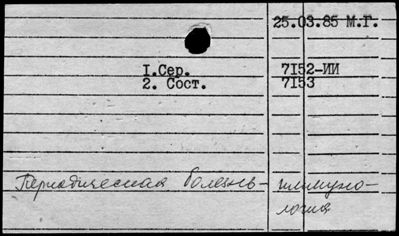 25.03.85 М.Г.
I.Сер. 7I52-ИИ
2. Сост. 7I53
Периодическая болезнь- иммуно-
логия